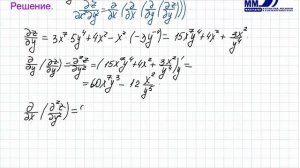 Решение.
∂z/∂y = 3x⁷·5y⁴+4x²−x²(−3y⁻⁴) = 15x⁷y⁴+4x²+3x²/y⁴
∂/∂y(∂z/∂y) = ∂²z/∂y² = (15x⁷y⁴+4x²+3x²/y⁴)'y =
= 60x⁷y³ − 12 x²/y⁵
∂/∂x(∂²z/∂y²) =